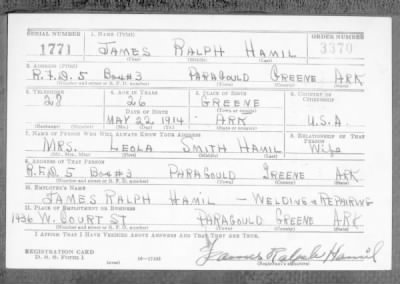 SERIAL NUMBER 1. NAME (Print) ORDER NUMBER
1771 JAMES RALPH HAMIL 3370
(First) (Middle) (Last)
2. ADDRESS (Print)
R.F.D. 5 Box #3 PARAGOULD GREENE ARK
(Number and street or R. F. D. number) (Town) (County) (State)
3. TELEPHONE 4. AGE IN YEARS 5. PLACE OF BIRTH 6. COUNTRY OF CITIZENSHIP
28 26 GREENE
DATE OF BIRTH (Town or county)
MAY 22, 1914 ARK U.S.A.
(Exchange) (Number) (Mo.) (Day) (Yr.) (State or country)
7. NAME OF PERSON WHO WILL ALWAYS KNOW YOUR ADDRESS 8. RELATIONSHIP OF THAT PERSON
MRS. LEOLA SMITH HAMIL Wife
(Mr., Mrs., Miss) (First) (Middle) (Last)
9. ADDRESS OF THAT PERSON
R.F.D. 5 PARAGOULD GREENE ARK
(Number and street or R. F. D. number) (Town) (County) (State)
10. EMPLOYER'S NAME
JAMES RALPH HAMIL - WELDING & REPAIRING
11. PLACE OF EMPLOYMENT OR BUSINESS
1936 W. COURT ST PARAGOULD GREENE ARK
(Number and street or R. F. D. number) (Town) (County) (State)
I AFFIRM THAT I HAVE VERIFIED ABOVE ANSWERS AND THAT THEY ARE TRUE.
REGISTRATION CARD
D. S. S. FORM 1 (over) 16-17105 James Ralph Hamil
(Registrant's signature)